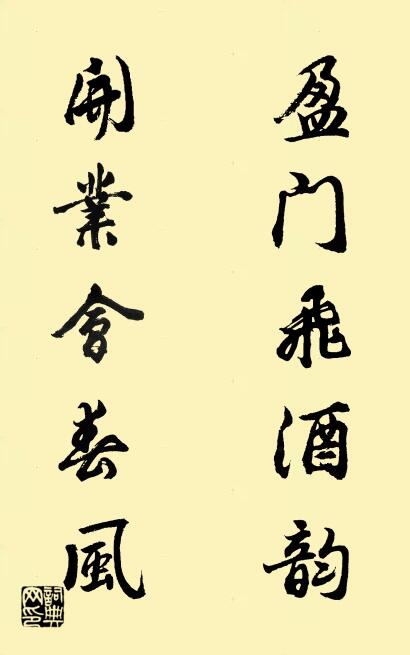 盈门飛酒韵
開業會春風
詞典网印